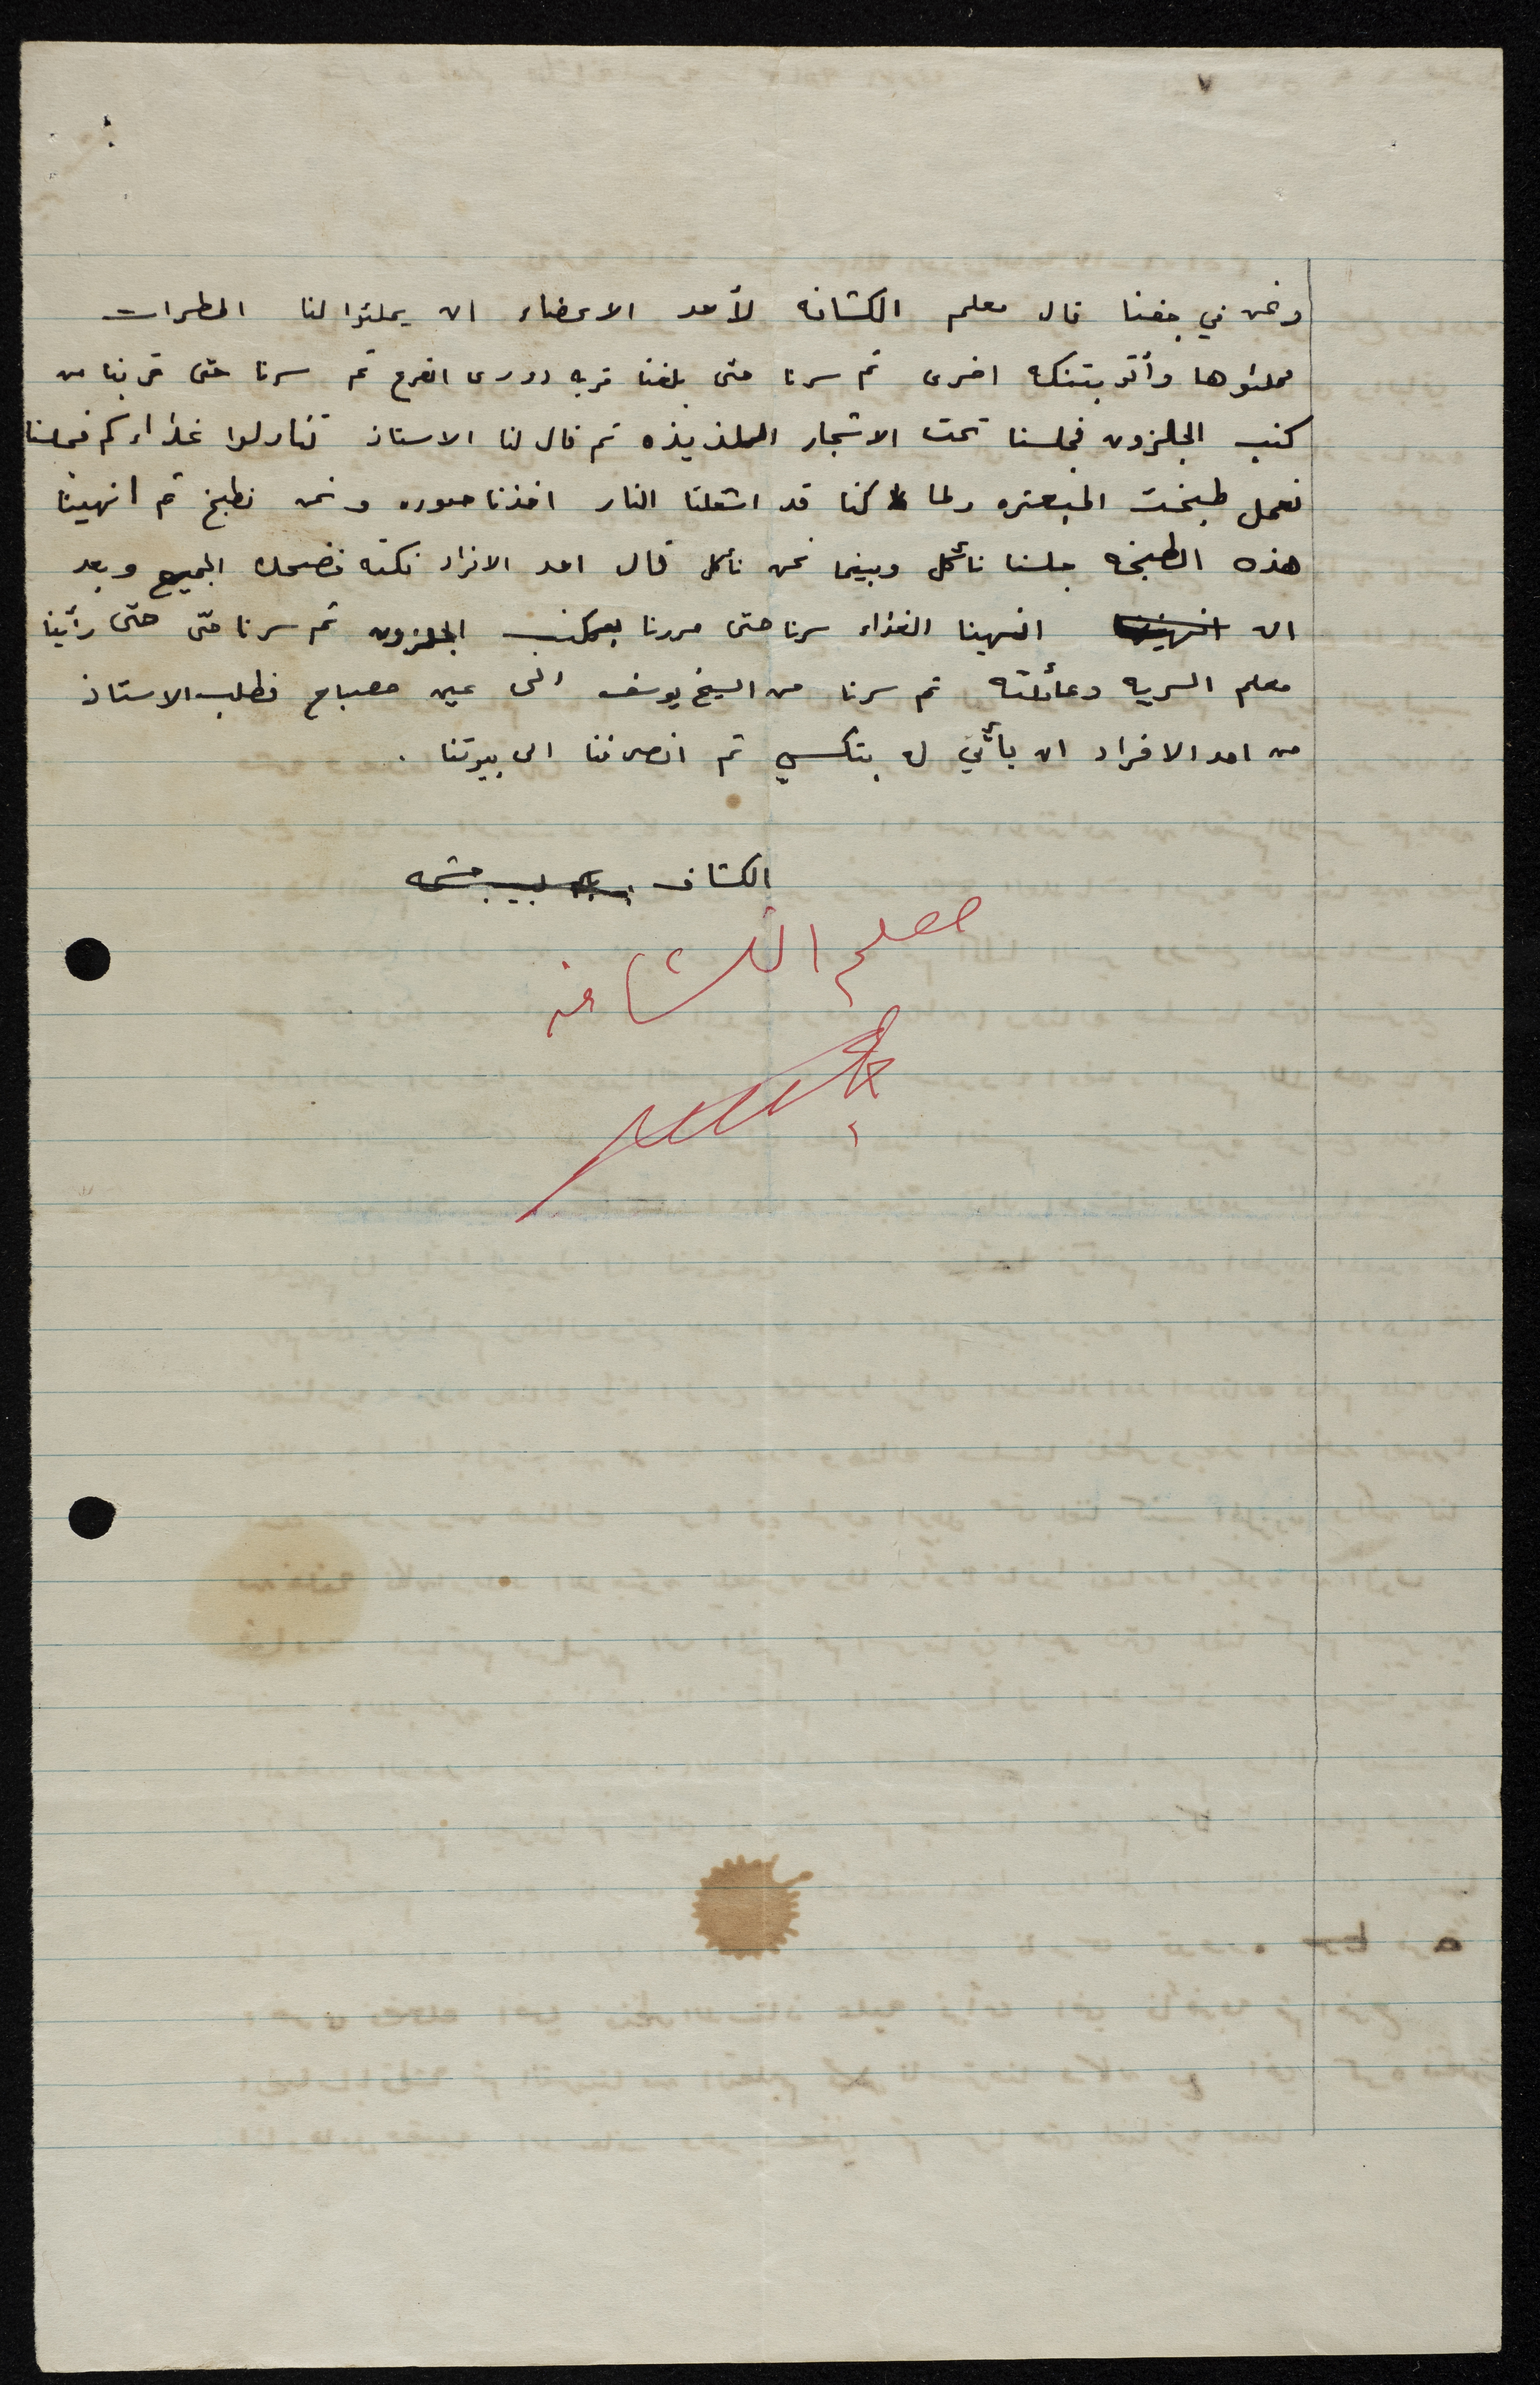 ٧
ونحن في جفنا قال معلم الكشافه لأحد الاعضاء ان يملئوا لنا المطرات
فملئوها وأتو بتنكه اخرى ثم سرنا حتى بلغنا قريه دورى القرع ثم سرنا حتى قربنا من
كنب الجلزون فجلسنا تحت الاشجار اللذيذه ثم قال لنا الاستاذ تناولوا غذاءكم فجلسنا
نعمل طبخت المبعتره ولما كنا قد اشعلنا النار اخذنا صوره ونحن نطبخ ثم انهينا
هذه الطبخه جلسنا نأكل وبينما نحن نأكل قال احد الافراد نكته فضحك الجميع وبعد
ان انهينا الغذاء سرنا حتى مررنا بكنب الجلزون ثم سرنا حتى حتى رأينا
معلم السريه وعائلته ثم سرنا من الشيخ يوسف الى عين مصباح فطلب الاستاذ
من احد الافراد ان يأتي له بتكسي ثم انصرفنا الى بيوتنا .
الكشاف
معلم الكشافه